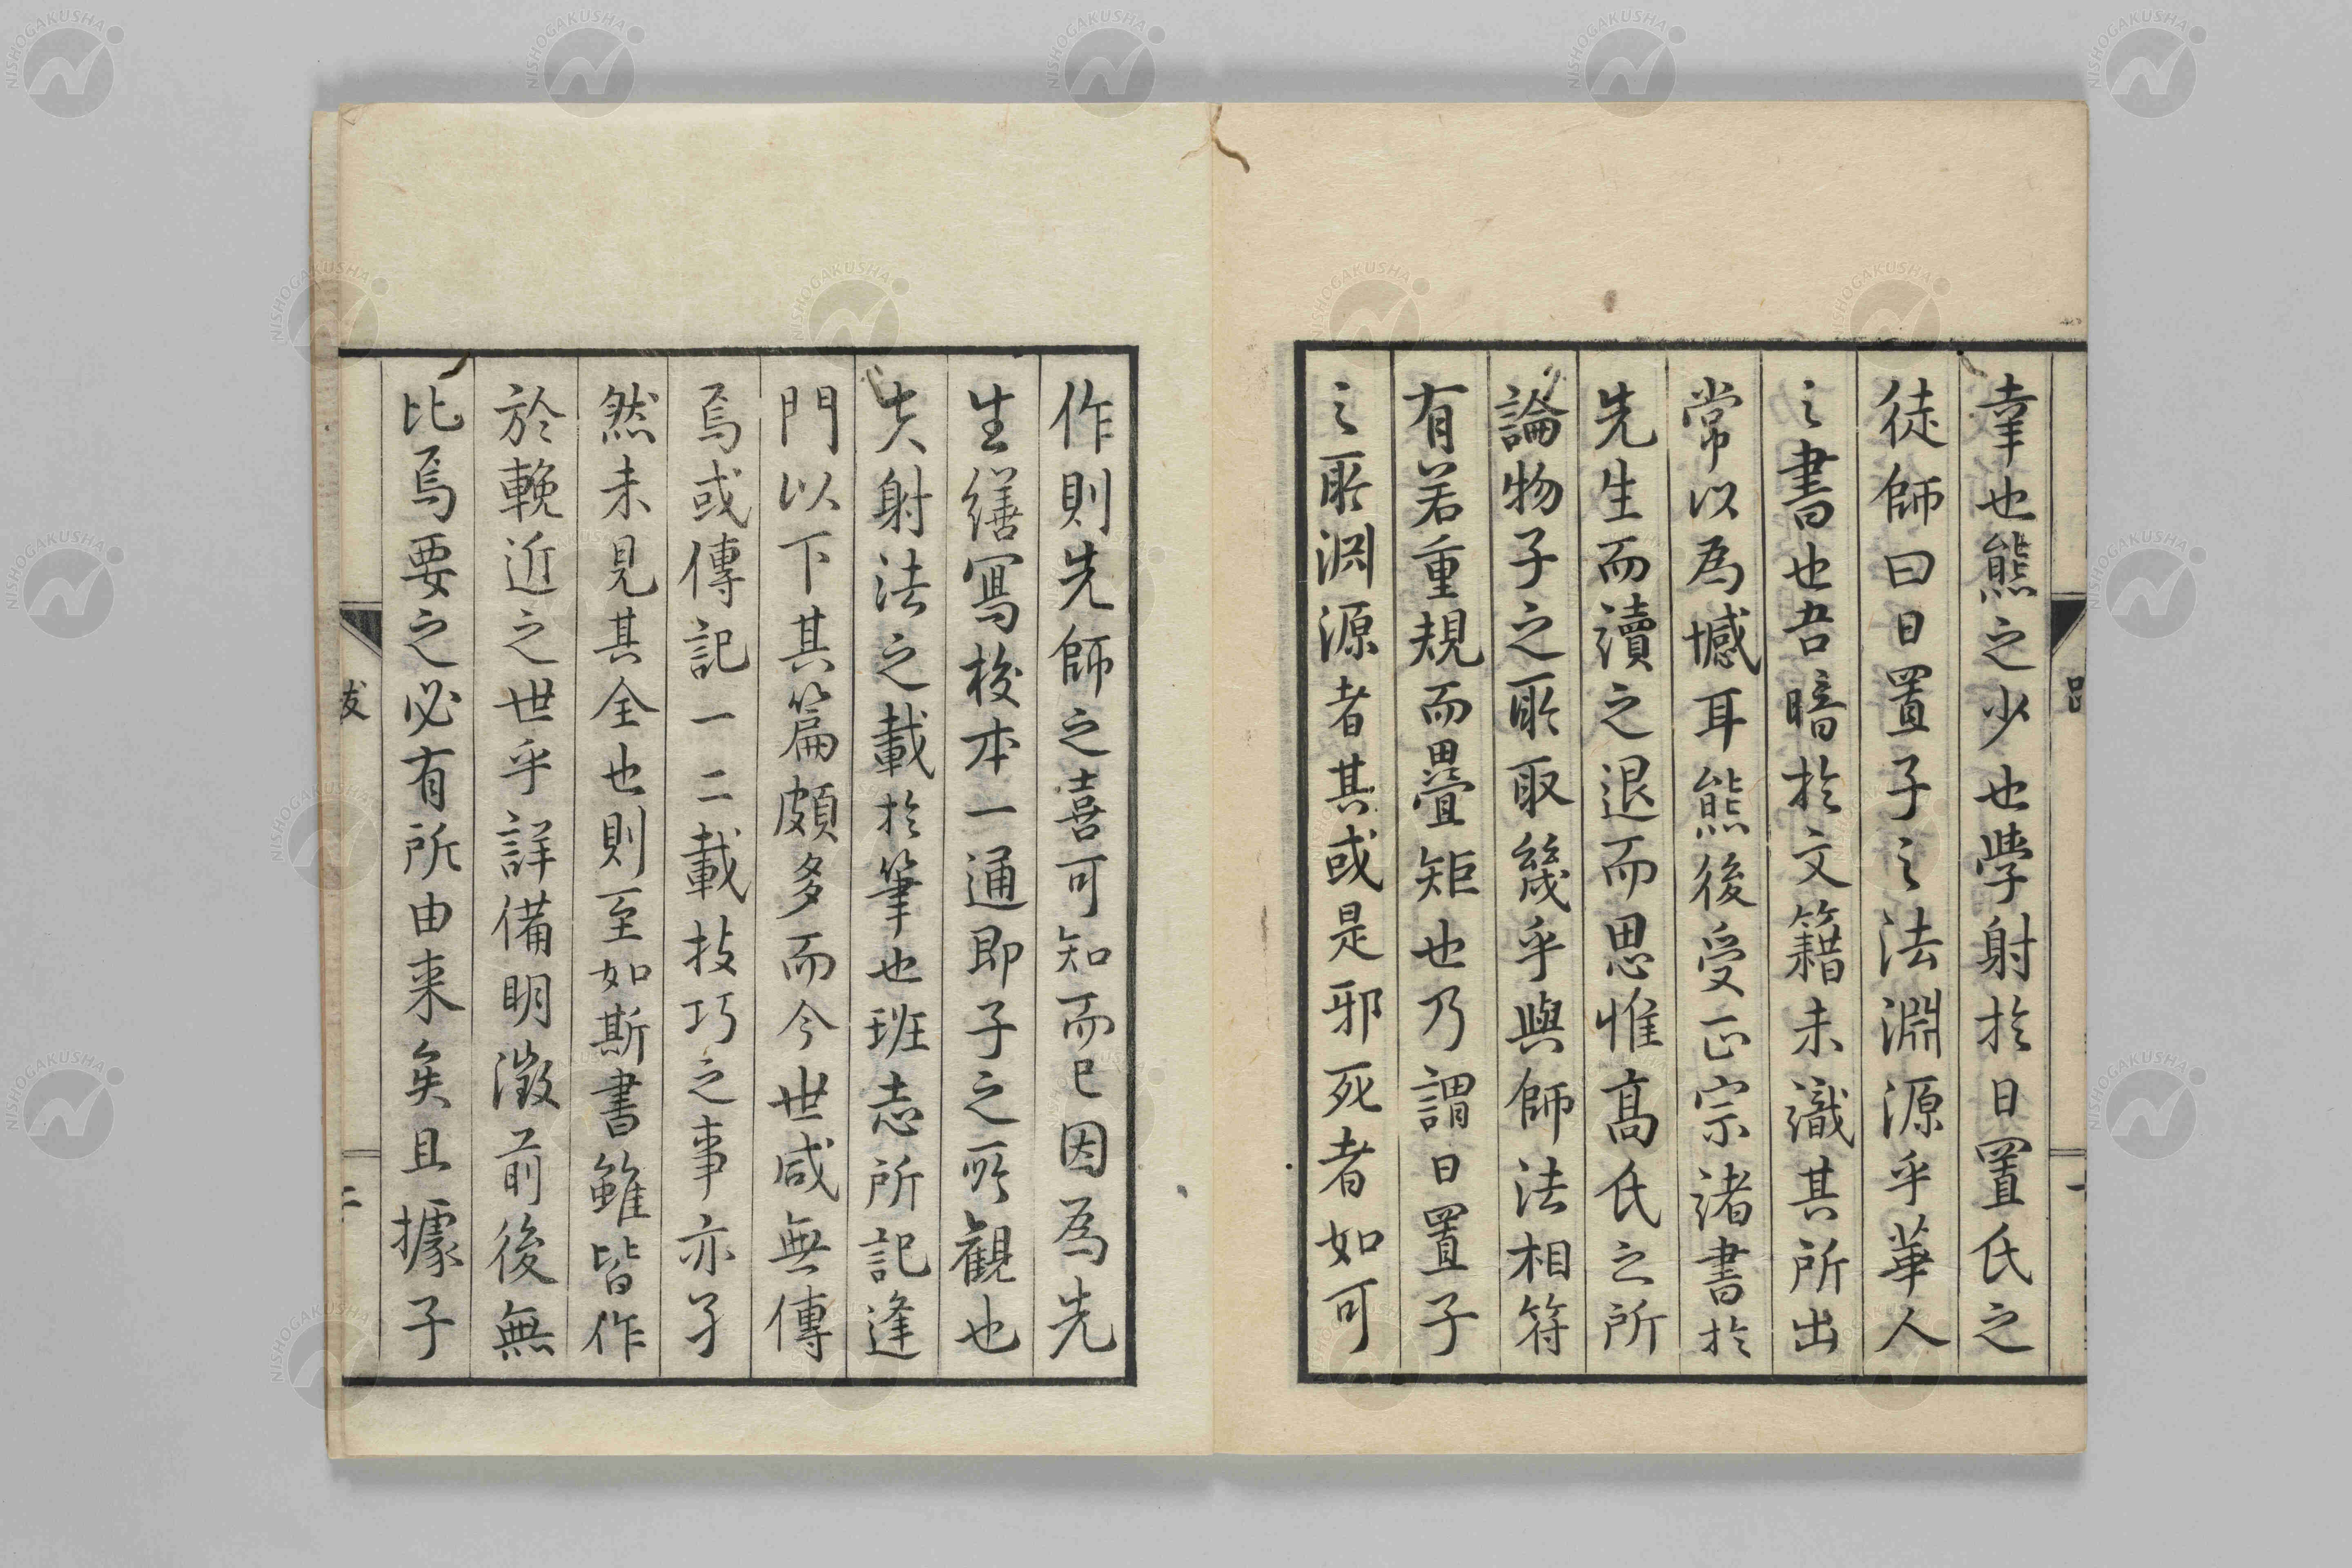 幸也熊之少也學射於日置氏之
徒師曰日置子之法淵源乎華人
之書也吾暗於文籍未識其所出
常以為憾耳熊後受正宗諸書於
先生而讀之退而思惟高氏之所
論物子之所取幾乎與師法相符
有若重規而疊矩也乃謂日置子
之所淵源者其或是邪死者如可
作則先師之喜可知而已因為先
生繕寫校本一通即子之所觀也
夫射法之載於筆也班志所記逢
門以下其篇頗多而今世咸無傳
焉或傳記一二載技巧之事亦孑
然未見其全也則至如斯書雖皆作
於輓近之世乎詳備明徵前後無
比焉要之必有所由来矣且據子
跋
二
NISHOGAKUSHA